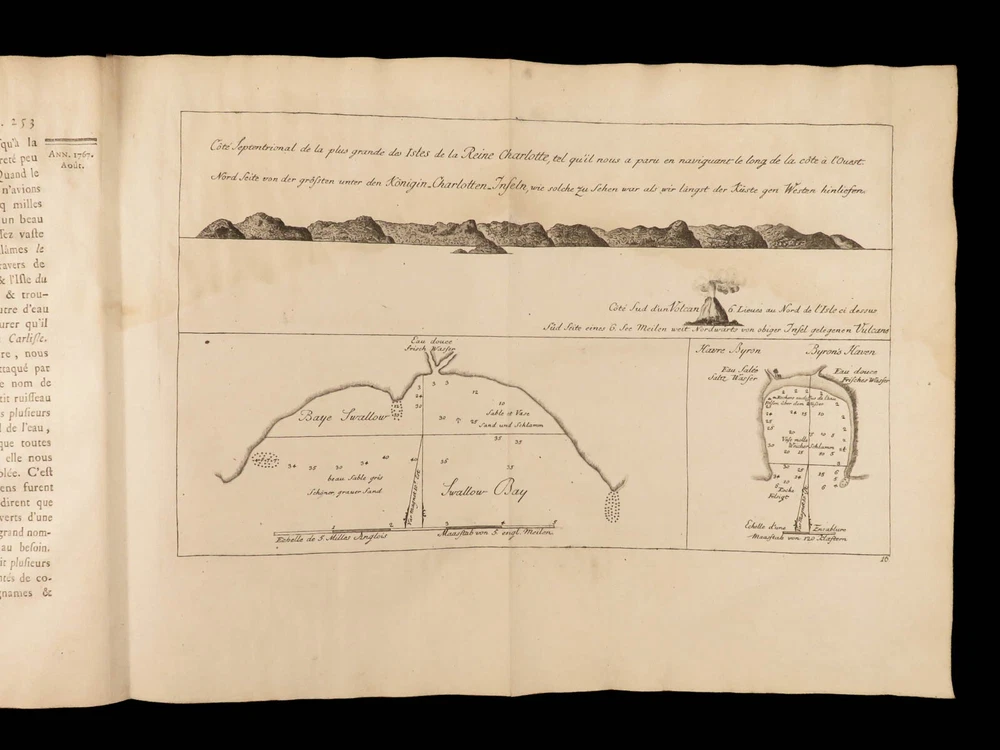 . 253
ANN. 1767.
Août.
qu'à la
reté peu
Quand le
n'avions
q milles
un beau
sez vaste
lâmes le
ravers de
& l'Isle du
& trou-
utre d'eau
urer qu'il
Carlisle.
re, nous
ttaqué par
le nom de
tit ruisseau
s plusieurs
l de l'eau,
que toutes
elle nous
olée. C'est
ens furent
dirent que
verts d'une
grand nom-
au besoin.
it plusieurs
ntés de co-
gnames &
Côté Septentrional de la plus grande des Isles de la Reine Charlotte, tel qu'il nous a paru en naviguant le long de la côte à l'Ouest.
Nord Seite von der größten unter den Königin-Charlotten-Inseln, wie solche zu sehen war als wir längst der Küste gen Westen hinliefen.
Côté Sud d'un Volcan 6. Lieues au Nord de l'Isle ci dessus
Süd Seite eines 6. See Meilen weit Nordwärts von obiger Insel gelegenen Vulcans
Eau douce
Frisch Wasser
Baye Swallow
Sable et Vase
Sand und Schlamm
beau Sable gris
Schöner grauer Sand
Swallow Bay
Echelle de 5. Milles Anglois
Maasstab von 5. engl. Meilen
Havre Byron
Byron's Haven
Eau Salée
Saltz Wasser
Eau douce
Frisches Wasser
Vase molle
Weicher Schlamm
Roche
Echelle d'une Encablure
Maasstab von 120 Klaftern
16